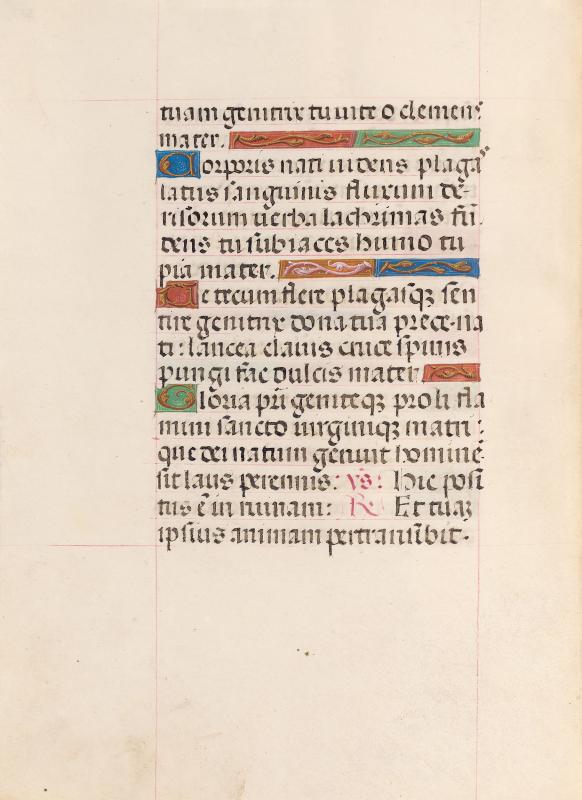 tuam genitrix tu vite o clemens
mater.
Corporis nati uidens plagas
latus sanguinis fluxum de-
risorum uerba lachrimas fū-
dens tu subiaces humo tu
pia mater.
Me tecum flere plagasqꝫ sen
tire genitrix dona tua prece na
ti: lancea clauis cruce spinis
pungi fac dulcis mater
Gloria pr̄i geniteqꝫ proli fla
mini sancto uirginiqꝫ matri:
que dei natum genuit hominē
sit laus perennis: vs̄: Hic posi
tus ē in ruinam: R̄ Et tuā
ipsius animam pertransibit.